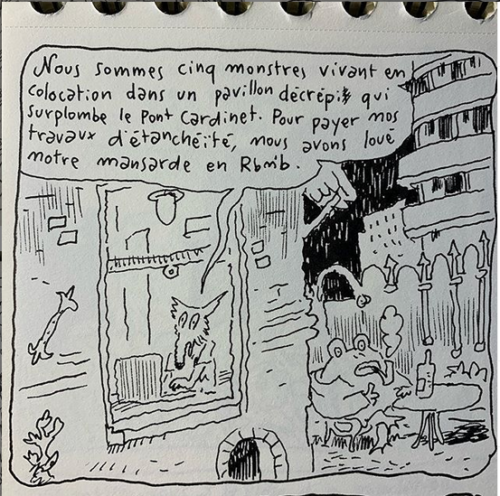 Nous sommes cinq monstres vivant en
colocation dans un pavillon décrépi qui
surplombe le Pont Cardinet. Pour payer nos
travaux d'étanchéité, nous avons loué
notre mansarde en Rbnib.